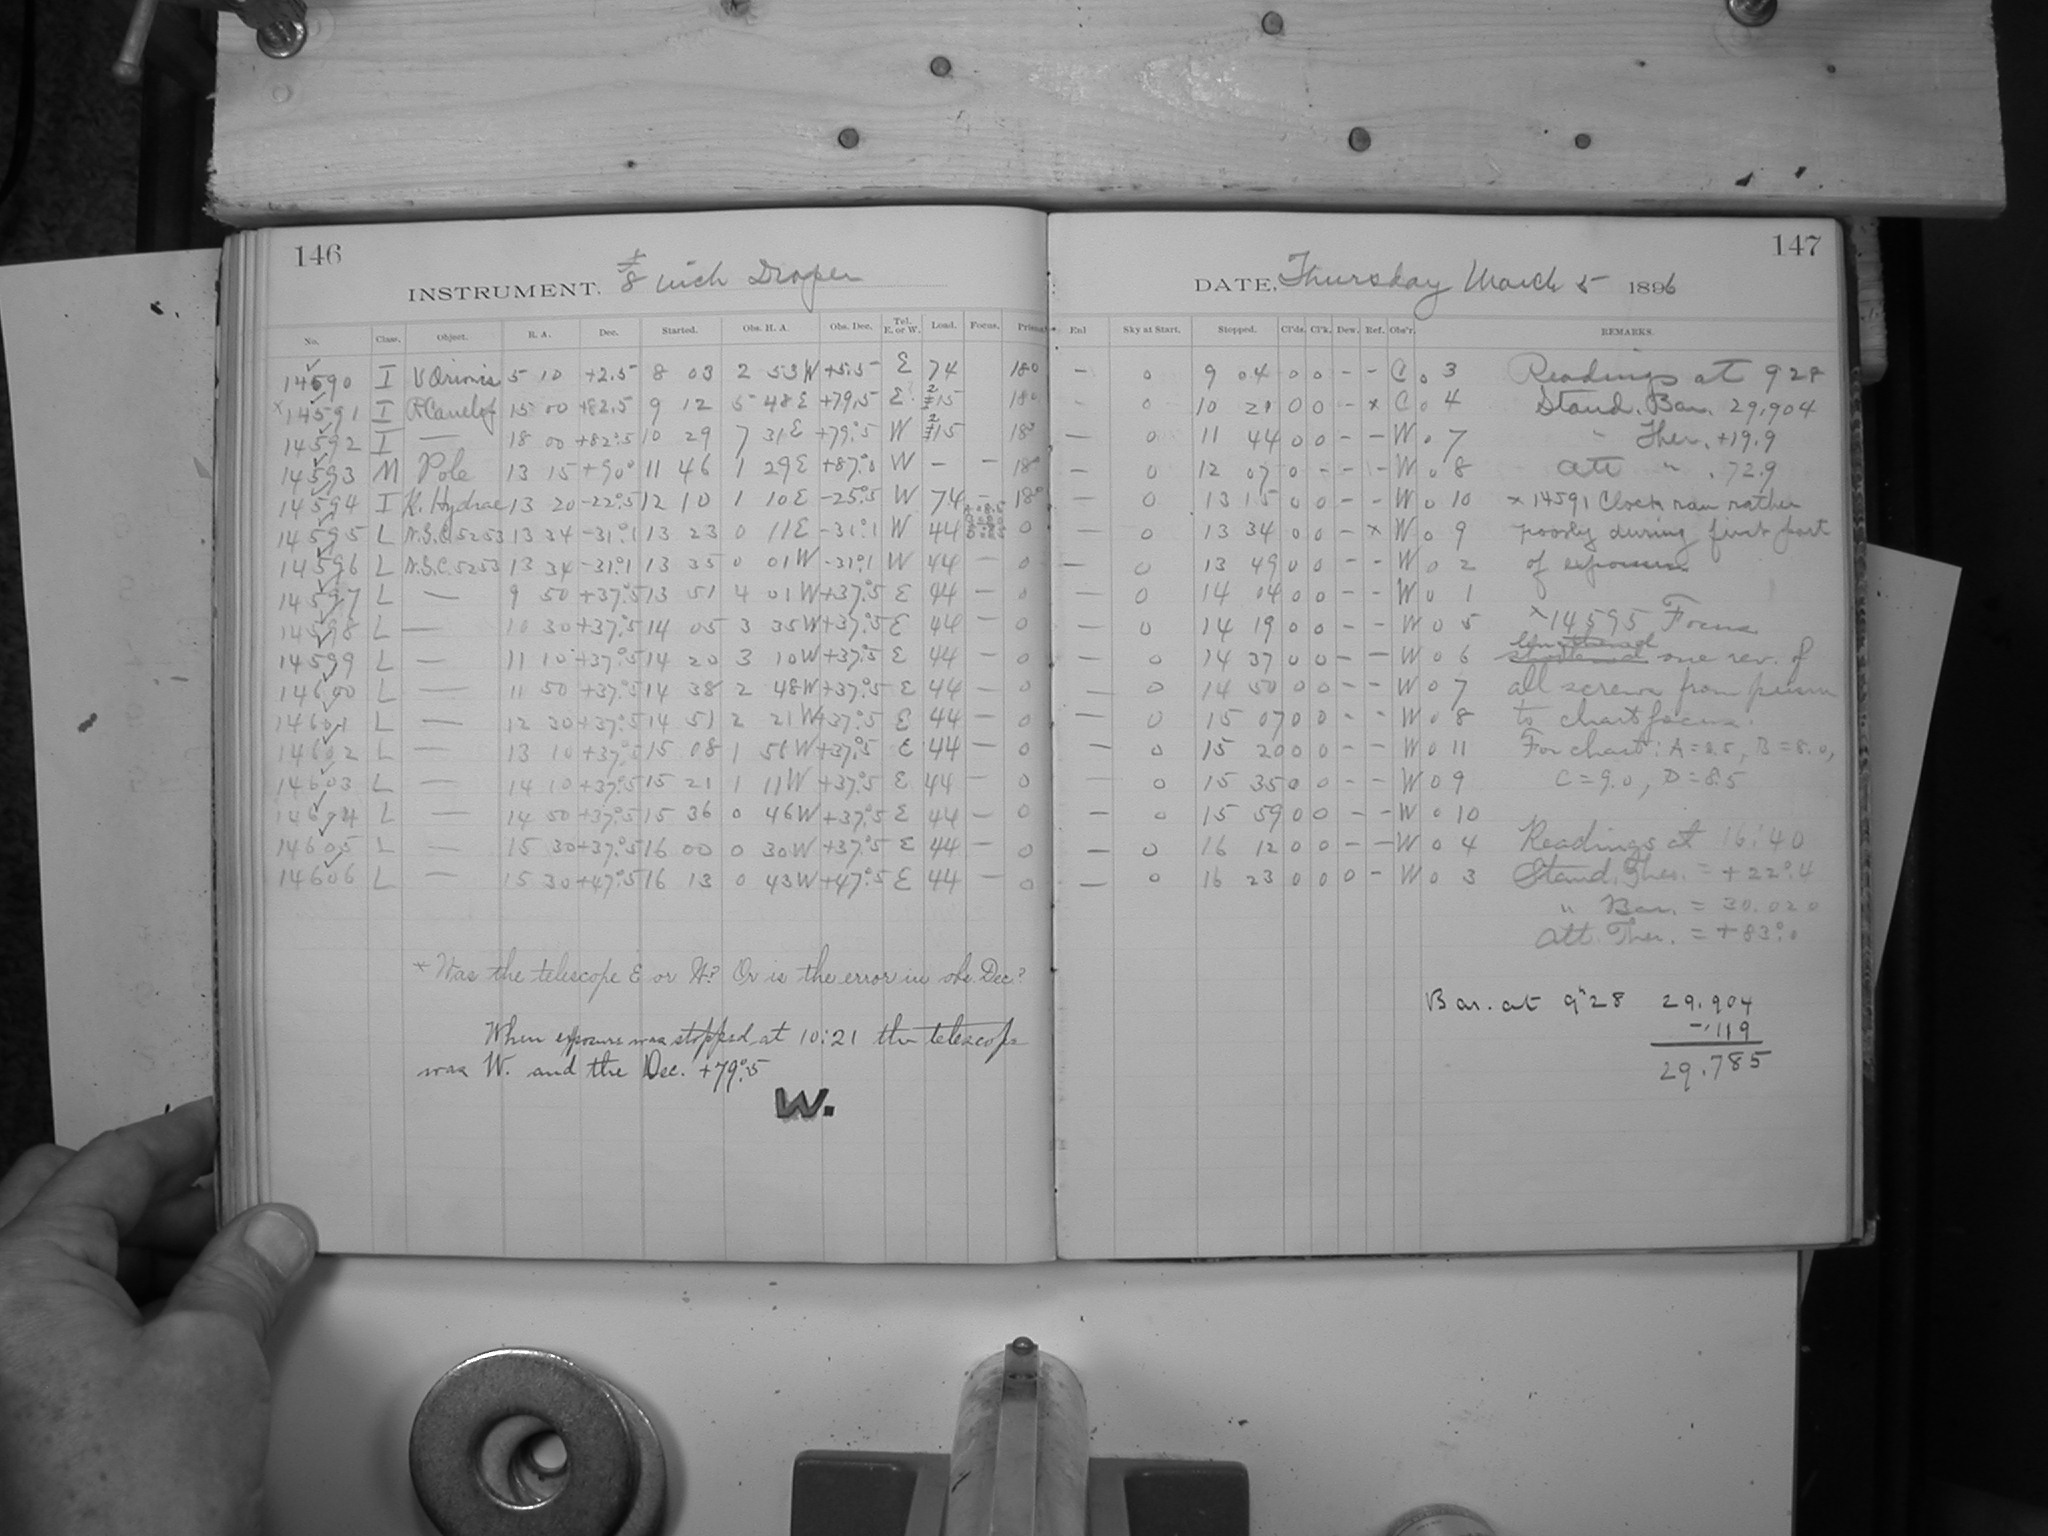 146
INSTRUMENT. 8 inch Draper
No. Class. Object. R. A. Dec. Started. Obs. H. A. Obs. Dec. Tel. E. or W. Load. Focus. Prism
14590 I V Orionis 5 10 +2.5 8 03 2 53W +5.5 E 74 180
x 14591 I R Camelop 15 00 +82.5 9 12 5 48E +79.5 E 15 18°
14592 I — 18 00 +82°.5 10 29 7 31E +79°.5 W 15 18°
14593 M Pole 13 15 +90° 11 46 1 29E +87°.0 W – – 18°
14594 I K. Hydrae 13 20 -22°.5 12 10 1 10E -25°.5 W 74 – 18°
14595 L A.G.C. 5253 13 34 -31°.1 13 23 0 11E -31°.1 W 44 0
14596 L A.G.C. 5253 13 34 -31°.1 13 35 0 01W -31°.1 W 44 – 0
14597 L — 9 50 +37°.5 13 51 4 01W +37°.5 E 44 – 0
14598 L — 10 30 +37°.5 14 05 3 35W +37°.5 E 44 – 0
14599 L — 11 10 +37°.5 14 20 3 10W +37°.5 E 44 – 0
14600 L — 11 50 +37°.5 14 38 2 48W +37°.5 E 44 – 0
14601 L — 12 30 +37°.5 14 51 2 21W +37°.5 E 44 – 0
14602 L — 13 10 +37°.5 15 08 1 58W +37°.5 E 44 – 0
14603 L — 14 10 +37°.5 15 21 1 11W +37°.5 E 44 – 0
14604 L — 14 50 +37°.5 15 36 0 46W +37°.5 E 44 – 0
14605 L — 15 30 +37°.5 16 00 0 30W +37°.5 E 44 – 0
14606 L — 15 30 +47°.5 16 13 0 43W +47°.5 E 44 – 0
x Was the telescope E or W? Or is the error in obs. Dec?
When exposure was stopped at 10:21 the telescope
was W. and the Dec. +79°.5
W.
147
DATE, Thursday March 5 1896
Enl Sky at Start. Stopped. Cl'ds. Cl'k. Dew. Ref. Obs'r. REMARKS.
– 0 9 04 0 0 – – C 0 3 Readings at 9 28
0 10 21 0 0 – x C 0 4 Stand. Bar. 29.904
– 0 11 44 0 0 – – W 0 7 " Ther. +19.9
– 0 12 07 0 – – – W 0 8 att " . 72.9
– 0 13 15 0 0 – – W 0 10 x 14591 Clock ran rather
– 0 13 34 0 0 – x W 0 9 poorly during first part
– 0 13 49 0 0 – – W 0 2 of exposure.
– 0 14 04 0 0 – – W 0 1
– 0 14 19 0 0 – – W 0 5 x 14595 Focus
lengthened
– 0 14 37 0 0 – – W 0 6 shortened one rev. of
– 0 14 50 0 0 – – W 0 7 all screws from prism
– 0 15 07 0 0 – – W 0 8 to chart focus.
– 0 15 20 0 0 – – W 0 11 For chart: A = 8.5, B = 8.0,
– 0 15 35 0 0 – – W 0 9 C = 9.0, D = 8.5
– 0 15 59 0 0 – – W 0 10
– 0 16 12 0 0 – – W 0 4 Readings at 16:40
– 0 16 23 0 0 0 – W 0 3 Stand. Ther. = +22°.4
" Bar. = 30.020
Att. Ther. = +83°.0
Bar. at 9h 28 29.904
-.119
29.785